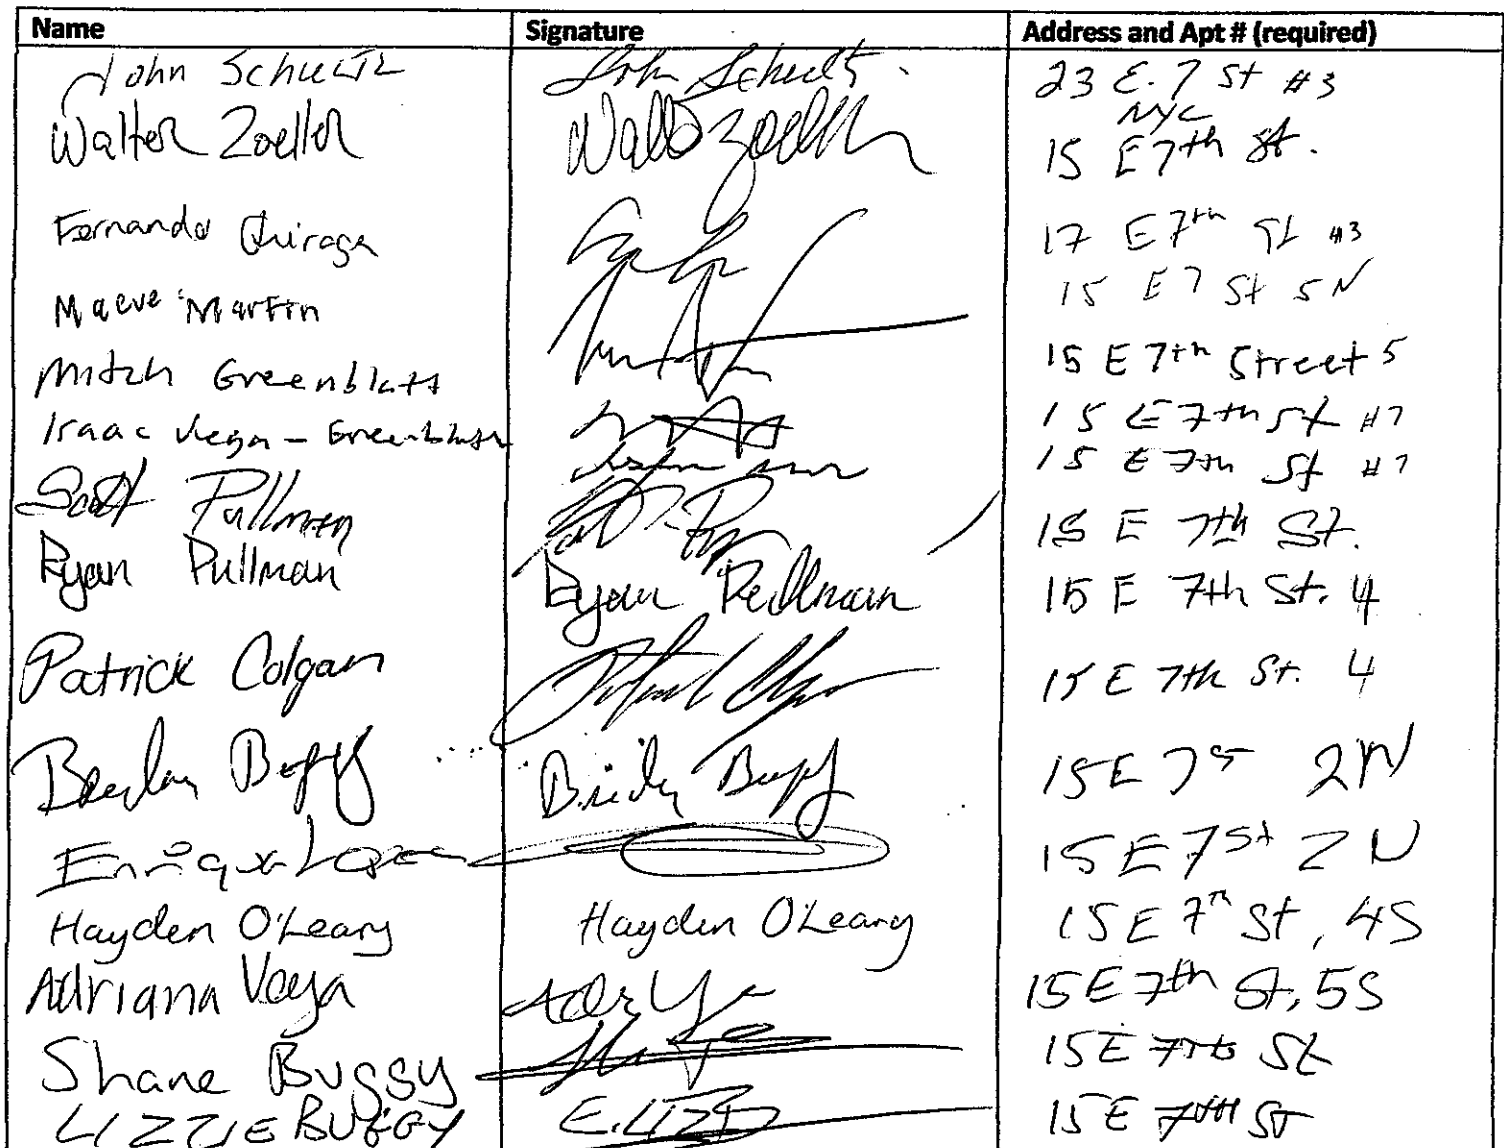 Name Signature Address and Apt # (required)
John Schultz John Schultz. 23 E. 7 St #3
NYC
Walter Zoeller 15 E 7th St.
Fernando Quiroga 17 E 7th St #3
Maeve Martin 15 E 7 St 5N
Mitch Greenblatt 15 E 7th Street 5
Isaac Vega - Greenblatt 15 E 7th St #7
15 E 7th St #7
Scott Pullman 15 E 7th St.
Ryan Pullman Ryan Pullman 15 E 7th St. 4
Patrick Colgan Patrick Colgan 15 E 7th St. 4
15 E 7 St 2N
Enrique Lopez 15 E 7 St 2N
Hayden O'Leary Hayden O'Leary 15 E 7th St, 4S
Adriana Vega 15 E 7th St, 5S
Shane Buggy 15 E 7th St
LIZZIE BUGGY E.LIZ 15 E 7TH ST